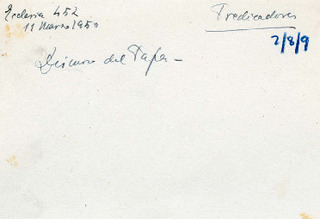 Ecclesia 452
11 Marzo 1950
Predicadores
2/8/9
Discurso del Papa -